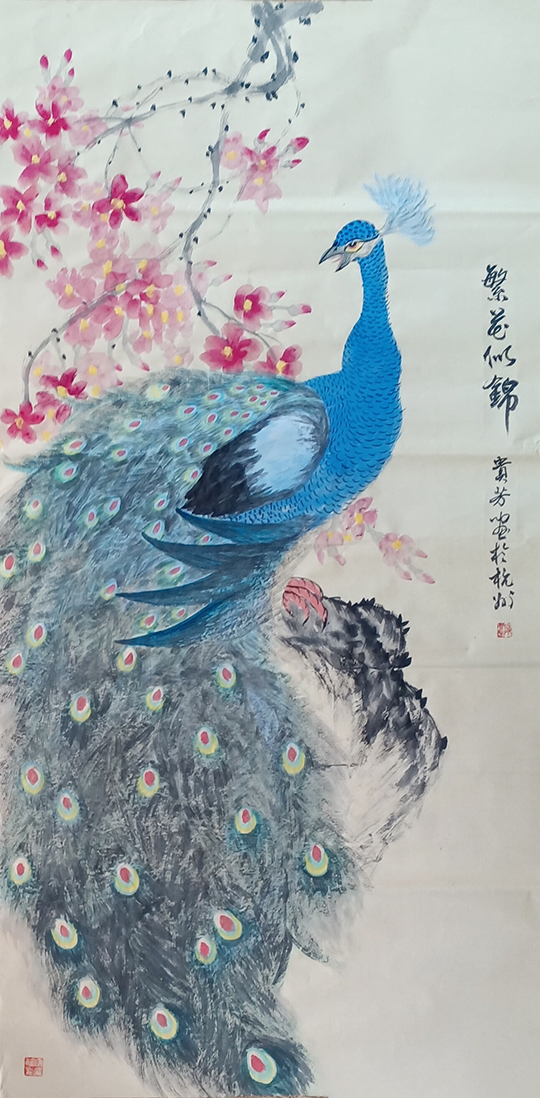 繁花似錦
貴芳畫於杭州